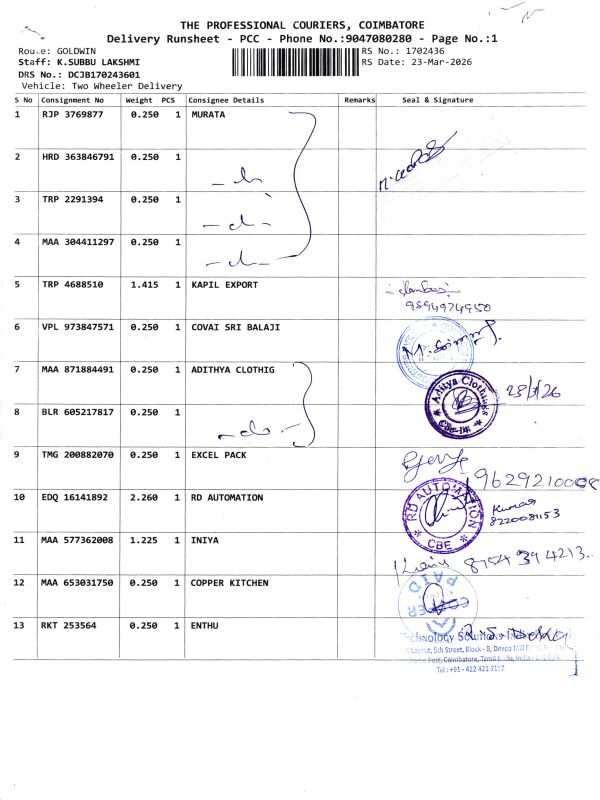 THE PROFESSIONAL COURIERS, COIMBATORE
Delivery Runsheet - PCC - Phone No.:9047080280 - Page No.:1
Route: GOLDWIN
RS No.: 1702436
Staff: K.SUBBU LAKSHMI
RS Date: 23-Mar-2026
DRS No.: DCJB170243601
Vehicle: Two Wheeler Delivery
S No Consignment No Weight PCS Consignee Details Remarks Seal & Signature
1 RJP 3769877 0.250 1 MURATA
2 HRD 363846791 0.250 1
3 TRP 2291394 0.250 1
4 MAA 304411297 0.250 1
5 TRP 4688510 1.415 1 KAPIL EXPORT
9894974950
6 VPL 973847571 0.250 1 COVAI SRI BALAJI
7 MAA 871884491 0.250 1 ADITHYA CLOTHIG
Aditya Clothings
8 BLR 605217817 0.250 1
9 TMG 200882070 0.250 1 EXCEL PACK
9629210008
10 EDQ 16141892 2.260 1 RD AUTOMATION
RD AUTOMATION
CBE
Kumar
8220081153
11 MAA 577362008 1.225 1 INIYA
8754394213
12 MAA 653031750 0.250 1 COPPER KITCHEN
PAID
13 RKT 253564 0.250 1 ENTHU
Layout, 5th Street, Block - B, Deepa Mill
Post, Coimbatore, Tamil Nadu, India
Tel : +91 - 422 421 7107